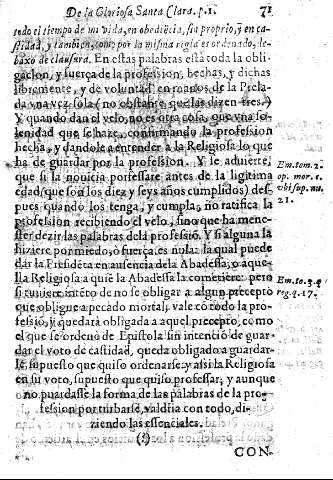 De la Gloriosa Santa Clara. p.1. 71
todo el tiempo de mi vida, en obediẽcia, sin proprio, y en ca-
stidad, y tambien, como por la misma regla es ordenado, de-
baxo de clausura. En estas palabras està toda la obli-
gacion, y fuerça de la profession, hechas, y dichas
libremente, y de voluntad en manos de la Prela-
da vna vez sola (no obstante que las dizen tres.)
Y quando dan el velo, no es otra cosa, que vna so-
lenidad que se haze, confirmando la profession
hecha, y dandole a entender à la Religiosa lo que
ha de guardar por la profession. Y se aduierte,
que si la nouicia professare antes de la ligitima
edad (que son los diez y seys años cumplidos) des-
pues quando los tenga, y cumpla, no ratifica la
profession recibiendo el velo, sino que ha mene-
ster dezir las palabras dela professiõ. Y si alguna la
hiziere por miedo, o fuerça, es nula: la qual puede
dar la Presidẽta en ausencia dela Abadessa, o aque-
lla Religiosa a quiẽ la Abadessa la cometiere: pero
si tuuiere intẽto de no se obligar a algun precepto
que obligue a pecado mortal, vale cõ todo la pro-
fessiõ, y quedarà obligada a aquel precepto, como
el que se ordenò de Epistola sin intenciõ de guar-
dar el voto de castidad, queda obligado a guardar-
le, supuesto que quiso ordenarse, y assi la Religiosa
en su voto, supuesto que quiso professar; y aunque
no guardasse la forma de las palabras de la pro-
fession por turbarse, valdria con todo, di-
ziendo las essenciales.
(?)
CON-
Em. tom. 2.
op. mor. 1.
vbi sup. nu.
21.
Em. to. 3. q
reg. q. 17.